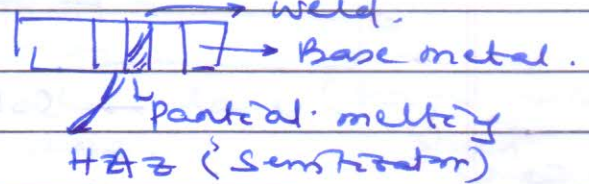 weld.
Base metal.
Partial melting
HAZ (Sensitization)